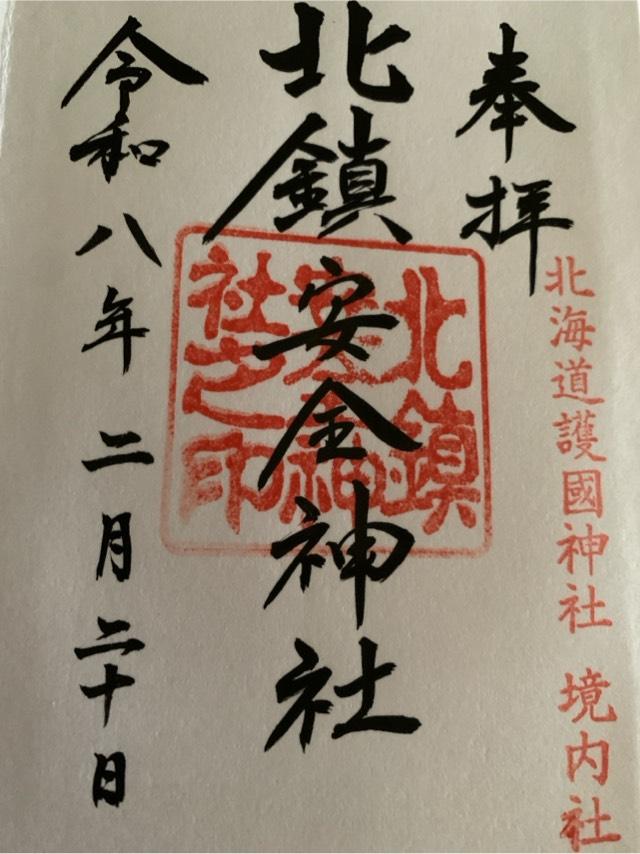 奉拝
北海道護國神社 境内社
北鎮安全神社
北鎮
安全神
社之印
令和八年 二月 二十日